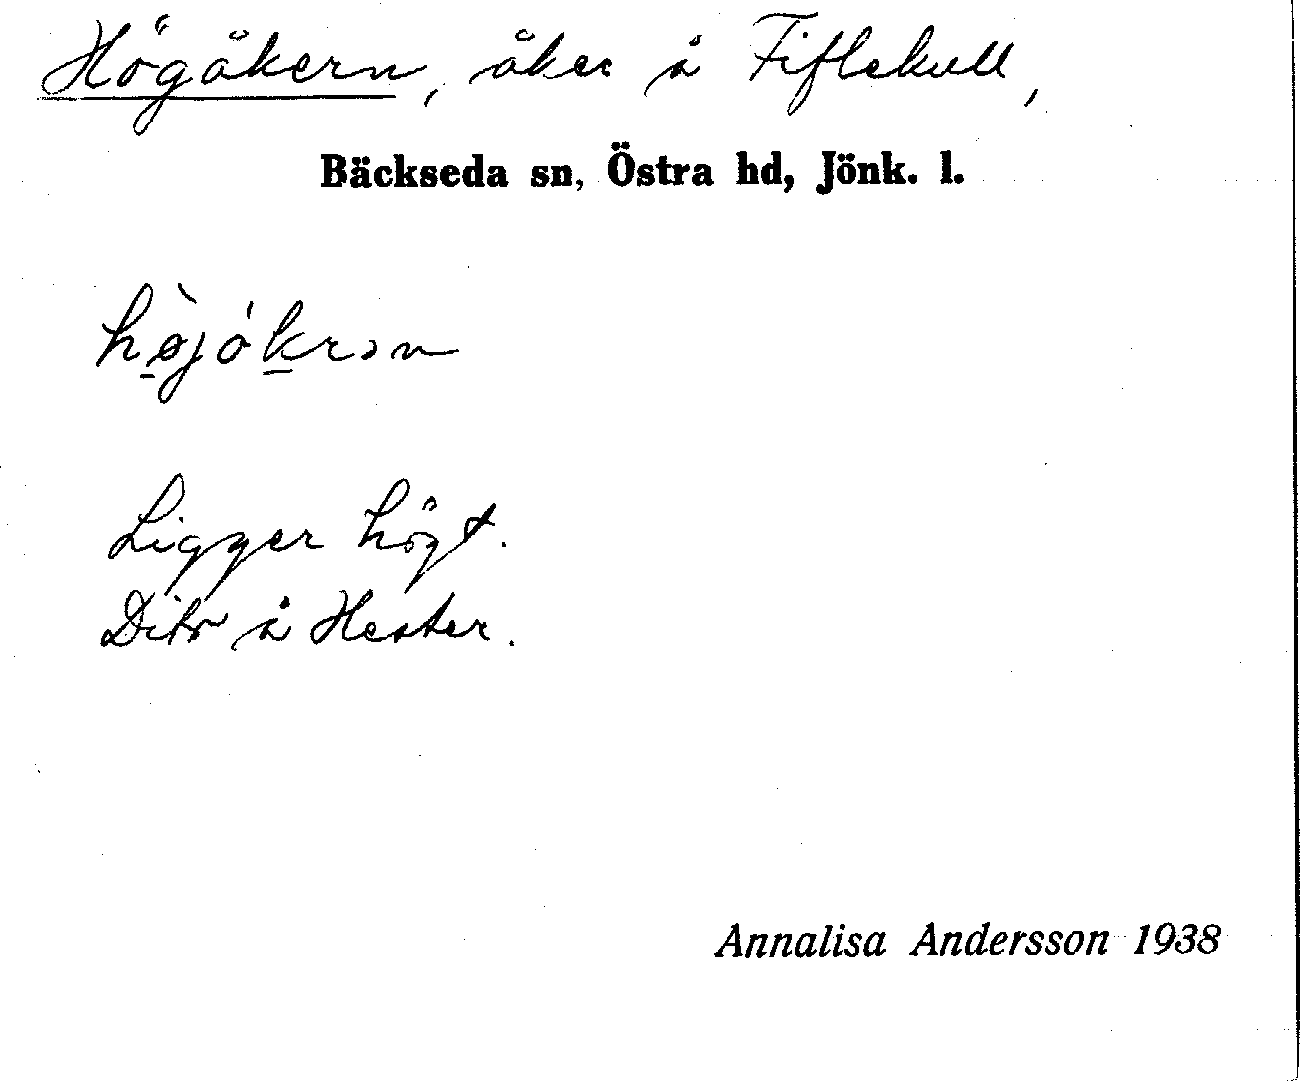 Högåkern, åker å Fiflekull,
Bäckseda sn, Östra hd, Jönk. l.
hø̀jókrən
Ligger högt.
Dito å Hester.
Annalisa Andersson 1938